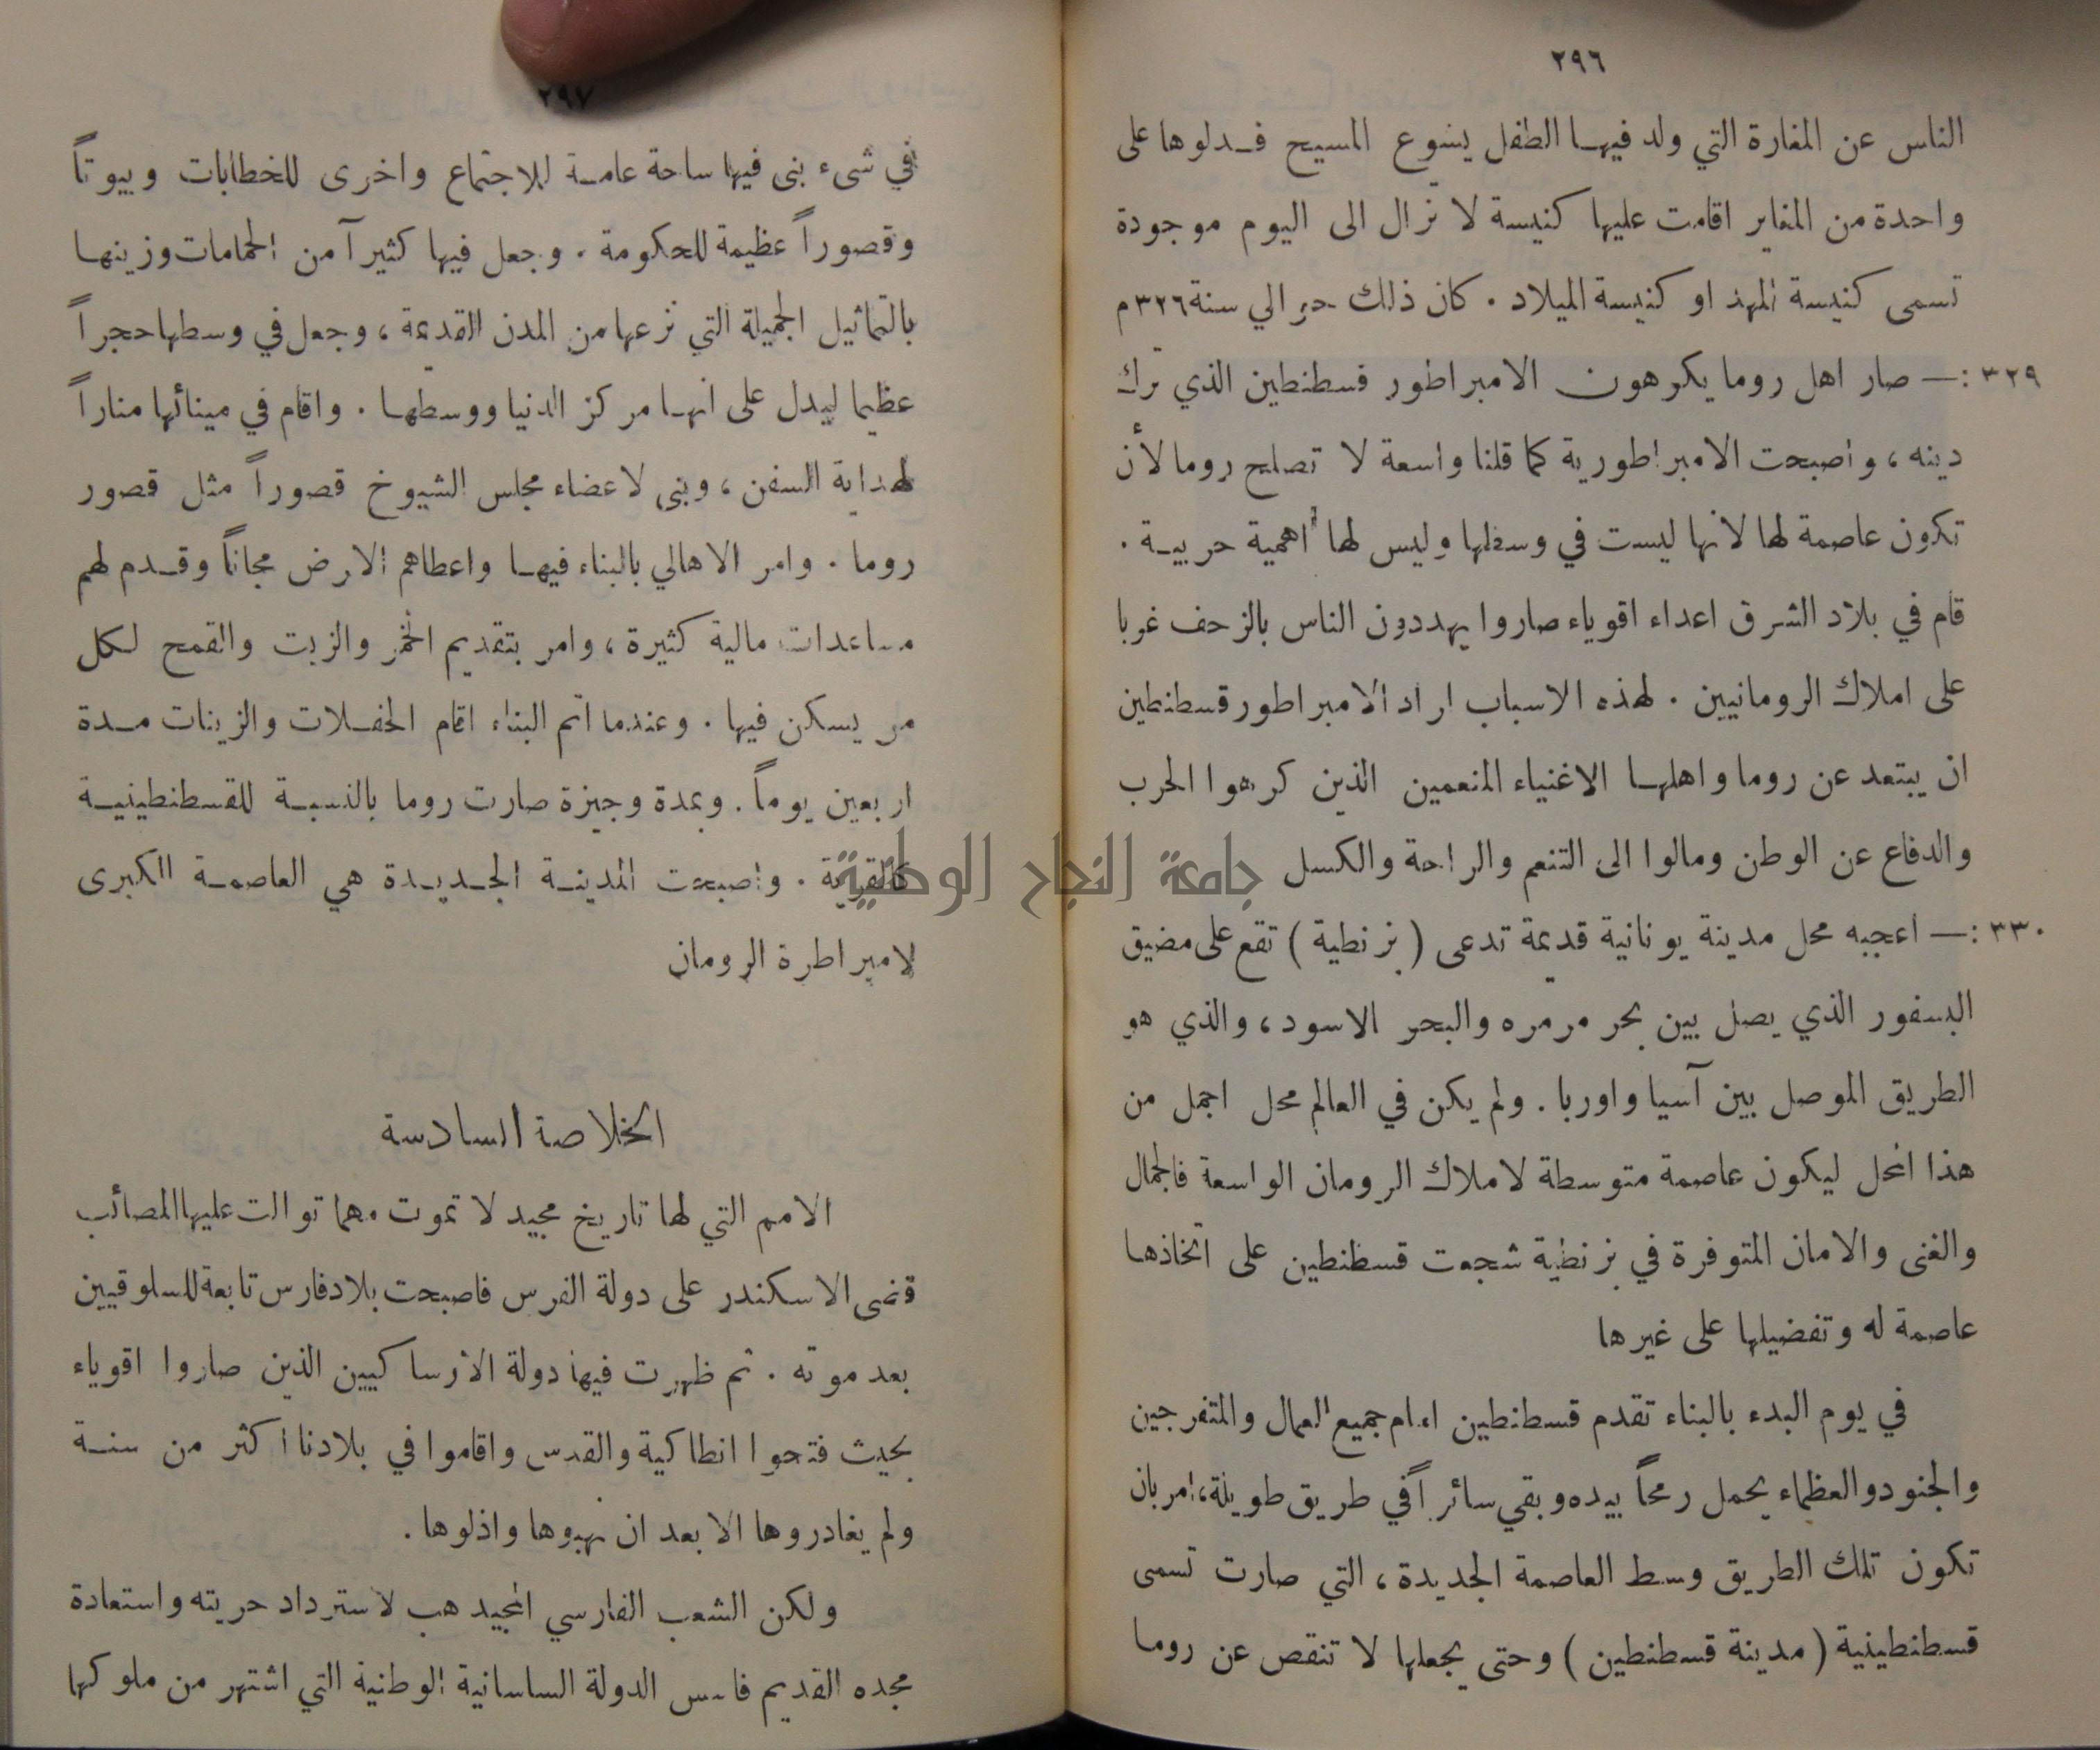 ٢٩٦
الناس عن المغارة التي ولد فيها الطفل يسوع المسيح فدلوها على
واحدة من المغاير اقامت عليها كنيسة لا تزال الى اليوم موجودة
تسمى كنيسة المهد او كنيسة الميلاد . كان ذلك حوالي سنة ٣٢٦م
٣٢٩ :ــ صار اهل روما يكرهون الامبراطور قسطنطين الذي ترك
دينه ، واصبحت الامبراطورية كما قلنا واسعة لا تصلح روما لأن
تكون عاصمة لها لانها ليست في وسطها وليس لها اهمية حربية .
قام في بلاد الشرق اعداء اقوياء صاروا يهددون الناس بالزحف غربا
على املاك الرومانيين . لهذه الاسباب اراد الامبراطور قسطنطين
ان يبتعد عن روما واهلها الاغنياء المنعمين الذين كرهوا الحرب
والدفاع عن الوطن ومالوا الى التنعم والراحة والكسل
٣٣٠ :ــ اعجبه محل مدينة يونانية قديمة تدعى ( بزنطية ) تقع على مضيق
البسفور الذي يصل بين بحر مرمره والبحر الاسود ، والذي هو
الطريق الموصل بين آسيا واوربا . ولم يكن في العالم محل اجمل من
هذا المحل ليكون عاصمة متوسطة لاملاك الرومان الواسعة فالجمال
والغنى والامان المتوفرة في بزنطية شجعت قسطنطين على اتخاذها
عاصمة له وتفضيلها على غيرها
في يوم البدء بالبناء تقدم قسطنطين امام جميع العمال والمتفرجين
والجنود والعظماء يحمل رمحاً بيده وبقي سائراً في طريق طويلة، امر بان
تكون تلك الطريق وسط العاصمة الجديدة ، التي صارت تسمى
قسطنطينية ( مدينة قسطنطين ) وحتى يجعلها لا تنقص عن روما
٢٩٧
في شيء بنى فيها ساحة عامة للاجتماع واخرى للخطابات وبيوتاً
وقصوراً عظيمة للحكومة . وجعل فيها كثيراً من الحمامات وزينها
بالتماثيل الجميلة التي نزعها من المدن القديمة ، وجعل في وسطها حجراً
عظيما ليدل على انها مركز الدنيا ووسطها . واقام في مينائها مناراً
لهداية السفن ، وبنى لاعضاء مجلس الشيوخ قصوراً مثل قصور
روما . وامر الاهالي بالبناء فيها واعطاهم الارض مجاناً وقدم لهم
مساعدات مالية كثيرة ، وامر بتقديم الخمر والزيت والقمح لكل
من يسكن فيها . وعندما اتم البناء اقام الحفلات والزينات مدة
اربعين يوماً . وبمدة وجيزة صارت روما بالنسبة للقسطنطينية
كالقرية . واصبحت المدينة الجديدة هي العاصمة الكبرى
لامبراطرة الرومان
الخلاصة السادسة
الامم التي لها تاريخ مجيد لا تموت مهما توالت عليها المصائب
قضى الاسكندر على دولة الفرس فاصبحت بلاد فارس تابعة للسلوقيين
بعد موته . ثم ظهرت فيها دولة الارساكيين الذين صاروا اقوياء
بحيث فتحوا انطاكية والقدس واقاموا في بلادنا اكثر من سنة
ولم يغادروها الا بعد ان نهبوها واذلوها .
ولكن الشعب الفارسي المجيد هب لاسترداد حريته واستعادة
مجده القديم فاسس الدولة الساسانية الوطنية التي اشتهر من ملوكها
جامعة النجاح الوطنية